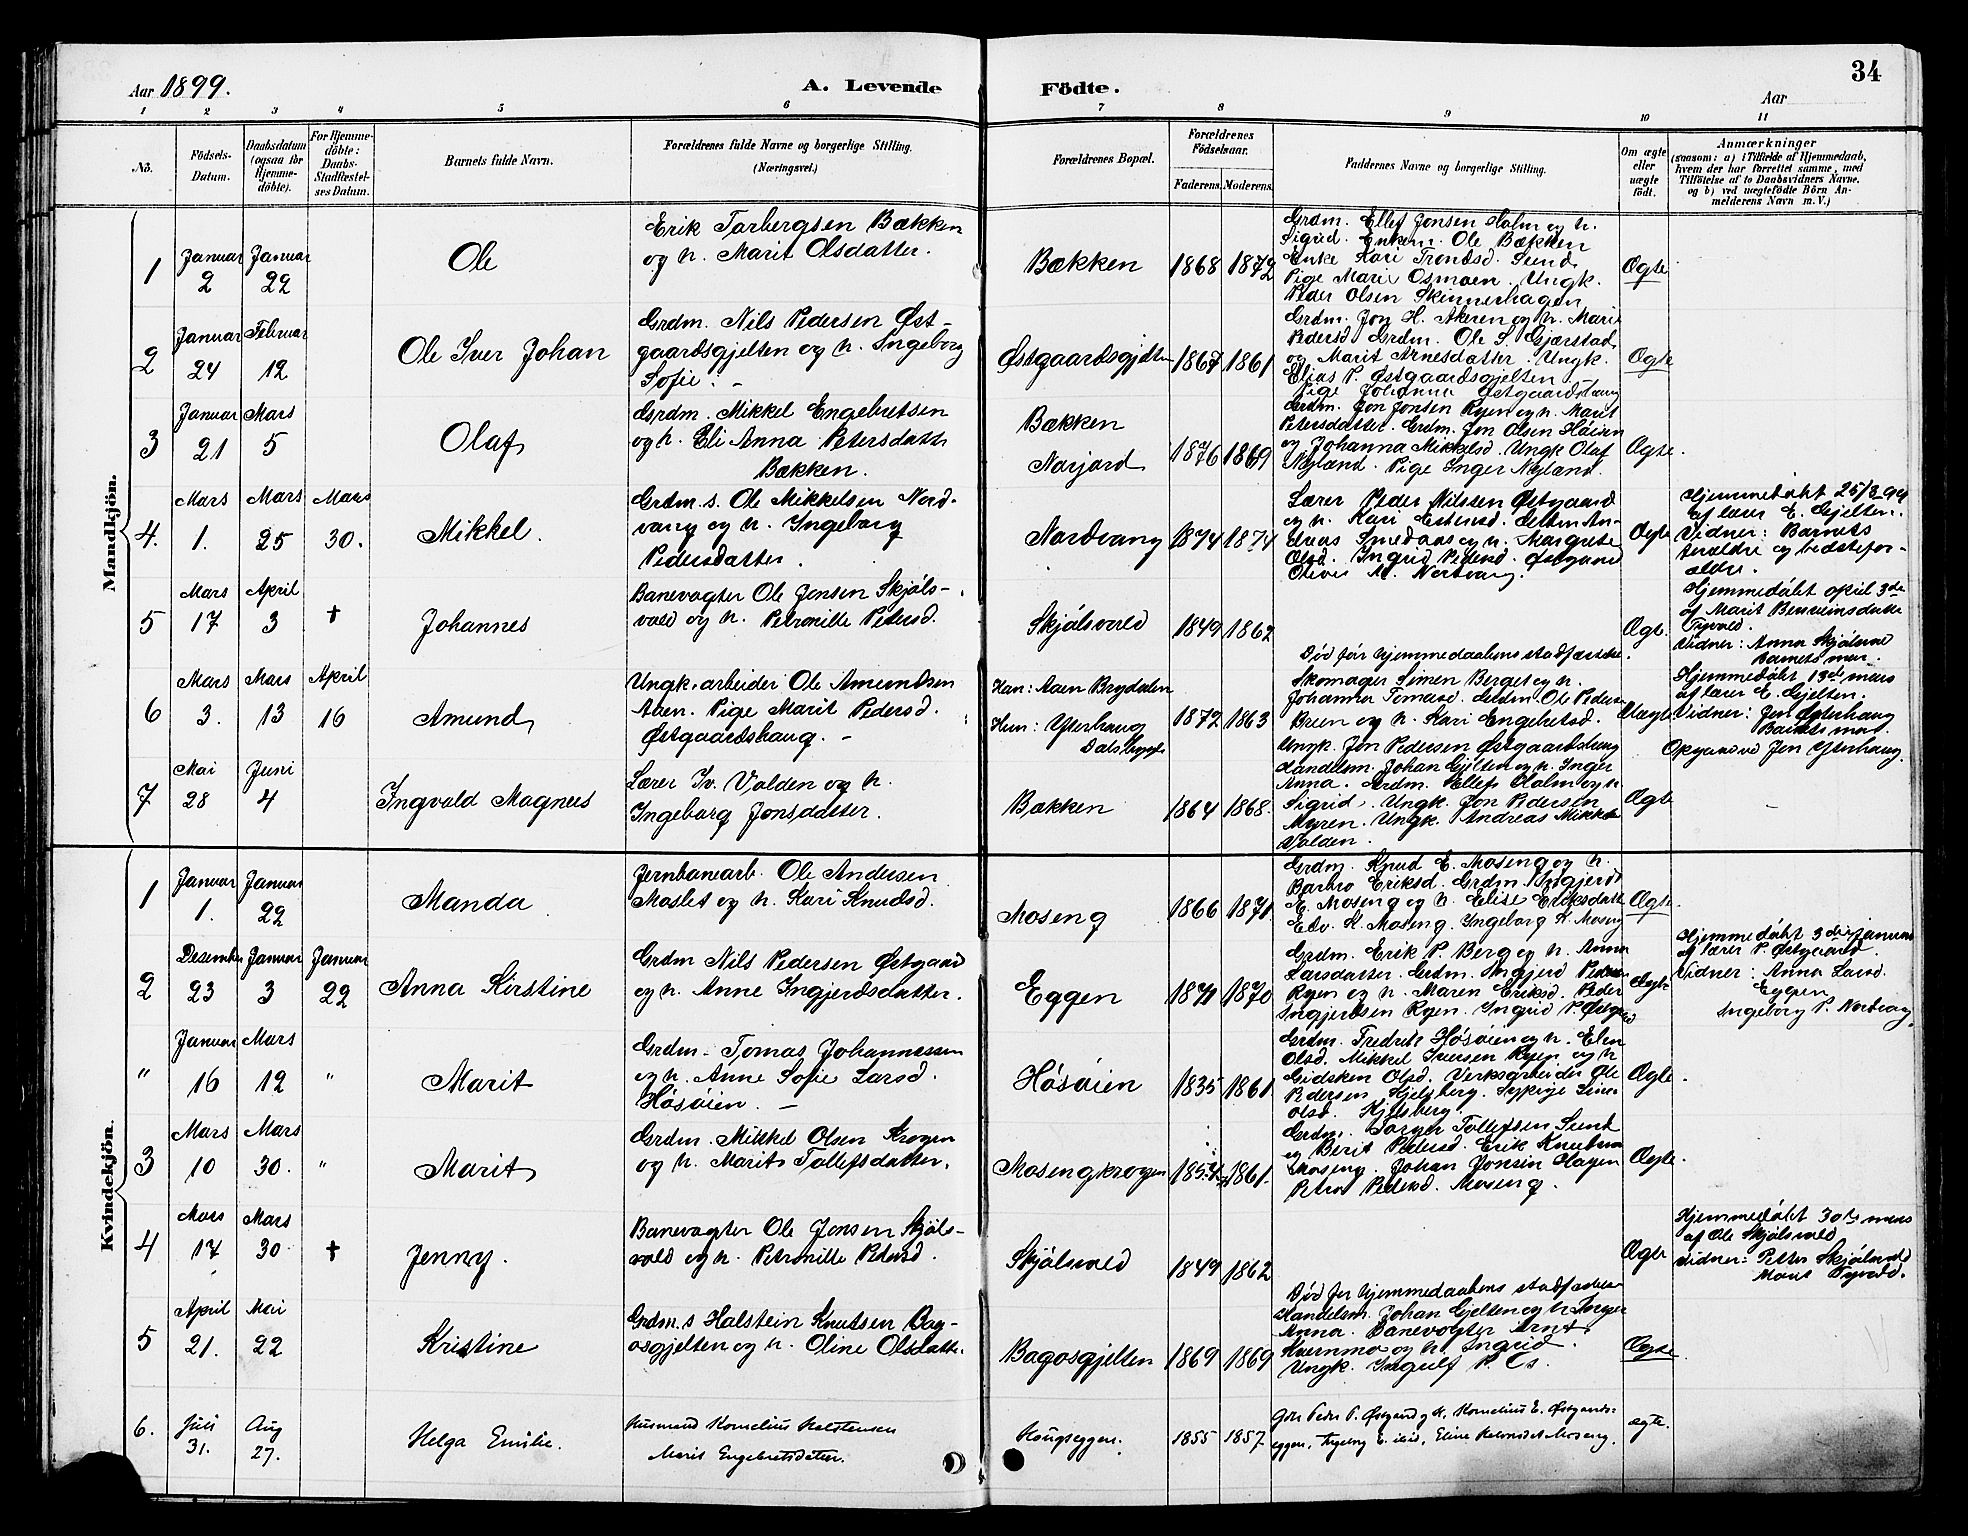 Aar 1899.
A. Levende
Födte.
34
Aar
1 2 3 4 5 6 7 8 9 10 11
No.
Födsels-Datum.
Daabsdatum (ogsaa for Hjemme-döbte).
For Hjemme-döbte: Daabs-Stadfæstel-ses Datum.
Barnets fulde Navn.
Forældrenes fulde Navne og borgerlige Stilling.
(Næringsvei.)
Forældrenes Bopæl.
Forældrenes Födselsaar.
Faderens. Moderens.
Faddernes Navne og borgerlige Stilling.
Om ægte eller uægte födt.
Anmærkninger
(saasom: a) i Tilfælde af Hjemmedaab,
hvem der har forrettet samme, med
Tilföielse af to Daabsvidners Navne,
og b) ved uegtefödte Börn An-
melderens Navn m. V.)
Mandkjön.
1
Januar 2
Januar 22
Ole
Erik Tarbergsen Bækken
og h. Marit Olsdatter.
Bækken
1868
1872
Grdm. Ellef Jonsen Holm og h.
Sigrid. Enkem. Ole Bækken
Enke Kari Trondsd. Sund
Pige Mari Osmoen. Ungk.
Peder Olsen Skinnerhagen
Ægte
2
Januar 24
Februar 12
Ole Iver Johan
Grdm. Nils Pedersen Øst-
gaardsgjelten og h. Ingeborg
Sofie. -
Østgaardsgjelten
1867
1861
Grdm. Jon H. Akeren og h. Mari
Pedersd. Grdm. Ole S. Gjærstad
og Marit Arnesdatter. Ungk.
Elias P. Østgaardsgjelten
Pige Johanna Østgaardshaug
Ægte
3
Januar 21
Mars 5
Olaf
Grdm. Mikkel Engebretsen
og h. Eli Anna Petersdatt
Bækken.
Bækken
Narjord
1876
1869
Grdm. Jon Jonsen Ryen og h. Marit
Petersdatter. Grdm. Jon Olsen Høien
og Johanna Mikkelsd. Ungk Olaf
Nyland. Pige Inger Nyland.
Ægte.
4.
Mars 1.
Mars 25
Mars 30.
Mikkel.
Grdm.s. Ole Mikkelsen Nord-
vang og h. Ingeborg
Pedersdatter.
Nordvang
1874
1874
Lærer Peder Nilsen Østgaard
og h. Kari Estensd. Grdm An-
dreas Smedaas og h. Margrete
Olsd. Ingrid Pedersd. Østgaard
Oliver M. Nordvang.
Ægte
Hjemmedøbt 25/3 99
af lærer E. Gjelten.
Vidner: Barnets
forældre og bedstefor-
ældre.
5
Mars 17
April 3
†
Johannes
Banevogter Ole Jonsen Skjøls-
vold og h. Petronille Petersd.
Skjølsvold
1849
1862
Død før hjemmedaabens stadfæstelse.
Ægte.
Hjemmedøbt april 3de
af Marit Bensveinsdatter
Tyvold.
Vidner: Anna Skjølsvold
Barnets mor.
6
Mars 3.
Mars 13
April 16
Amund
Ungk. arbeider Ole Amundsen
Aaen. Pige Marit Pedersd.
Østgaardshaug. -
Han: Aaen Brydalen
Hun: Ytterhaug
Dalsbygd
1872
1863
Skomager Simen Berget og h.
Johanna Tomasd. Grdm. Ole Peders
Breen og h. Kari Engebretsd.
Ungk. Jon Pedersen Østgaardshaug
Uægte
Hjemmedøbt 13de mars
af lærer E. Gjelten.
Vidner: Jon Østerhaug
Barnets mor.
Opgivet ved Jon Ytterhaug.
7
Mai 28
Juni 4
Ingvald Magnus
Lærer Iv. Volden og h.
Ingeborg Jonsdatter.
Bækken
1864
1868.
Handelsm. Johan Gjelten og h. Inger
Anna. Grdm. Ellef Holm og h.
Sigrid. Ungk. Jon Pedersen
Myren. Ungk. Andreas Mikkels
Volden.
Ægte
Kvindekjön.
1
Januar 1.
Januar 22
Manda
Jernbanearb. Ole Andersen
Moslet og h. Kari Knudsd.
Moseng
1866
1871
Grdm. Knud E. Moseng og h.
Barbro Eriksd. Grdm. Ingjerd
E. Moseng og h. Elise Eriksdatt
Edv. K. Moseng. Ingeborg K. Moseng
Ægte
2
Desember 23
Januar 3
Januar 22
Anna Kirstine
Grdm Nils Pedersen Østgaard
og h. Anne Ingjerdsdatter.
Eggen
1871
1870
Grdm. Erik P. Berg og h. Anna
Larsdatter. Grdm. Ingjerd Peders
Ryen og h. Maren Eriksd. Peder
Ingjerdsen Ryen. Ingrid P. Østgaard
Ægte
Hjemmedøbt 3die januar
af lærer P. Østgaard.
Vidner: Anna Larsd.
Eggen
Ingeborg P. Nordvang.
"
Januar 16
Mars 12
"
Marit
Grdm. Tomas Johannessen
og h. Anne Sofie Larsd.
Høsøien. -
Høsøien
1835
1861
Grdm. Fredrik Høsøien og h. Elen
Olsd. Mikkel Iversen Ryen og h
Gidsken Olsd. Verksarbeider Ole
Pedersen Kjelsberg. Sypige Sine
Olsd. Kjelsberg.
Ægte.
3
Mars 10
Mars 30.
"
Marit
Grdm. Mikkel Olsen Krogen
og h. Marit Tollefsdatter.
Mosengkrogen
1854
1861.
Grdm. Torger Tollefsen Sund
og Berit Pedersd. Erik Knudsen
Moseng. Johan Jonsen Hagen
Petra Pedersd. Moseng.
Ægte.
4
Mars 17
Mars 30
†
Jenny.
Banevogter Ole Jonsen Skjøls-
vold og h. Petronille Pedersd.
Skjølsvold
1849
1862
Død før hjemmedaabens stadfæstelse
Ægte
Hjemmedøbt 30te mars
af Ole Skjølsvold
Vidner: Petter Skjølsvold
Marit Tyvold.
5
April 21.
Mai 22
Kristine
Grdm.s Halstein Knutsen Bag-
osgjelten og h. Oline Olsdatt.
Bagosgjelten
1869
1869
Handelsm. Johan Gjelten og h Inger
Anna. Banevogter Arnt
Kvernmo og h. Ingrid.
Ungk. Ingulf P. Os.
Ægte
6.
Juli 31.
Aug 27.
Helga Emilie.
Husmand Kornelius Halstensen
Marit Engebretsdatter.
Haugseggen.
1855
1857
Grdr Peder P. Østgaard og K., Kornelius E. Østgaards-
eggen, Ingeborg E. ibid, Eline Moseng.
ægte.